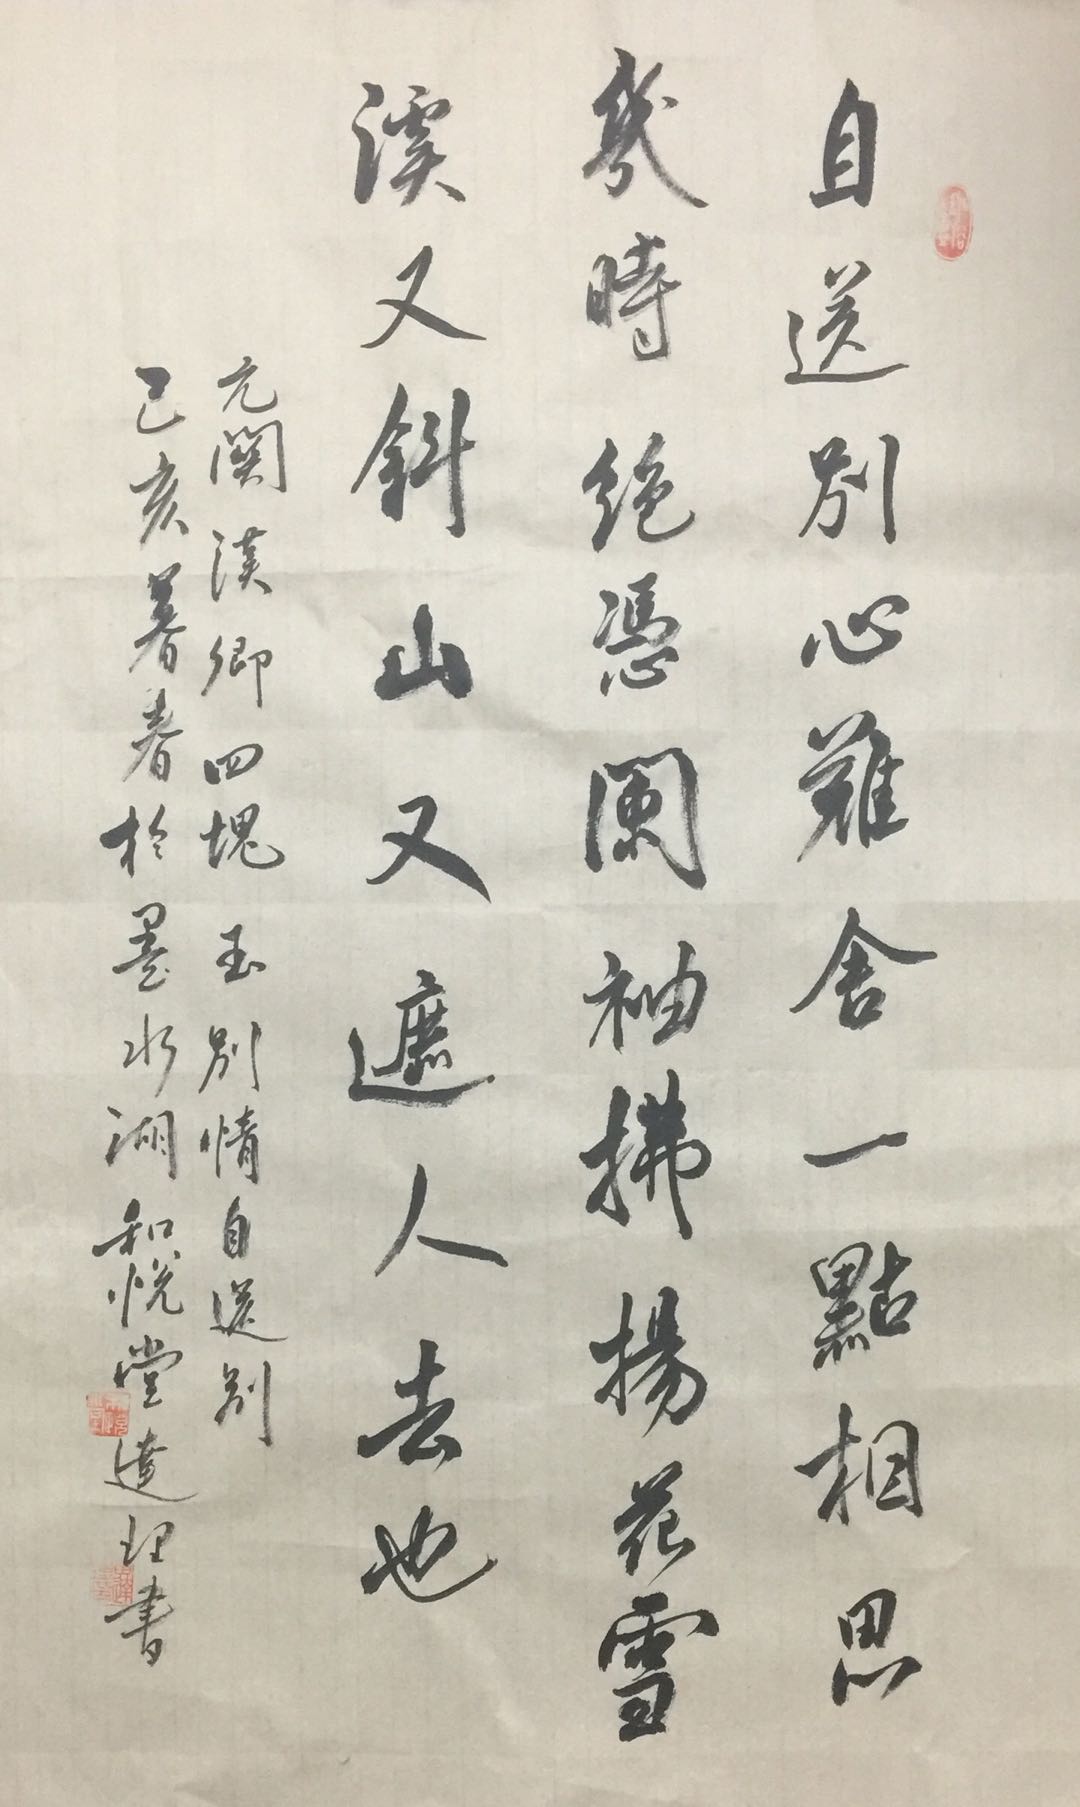 自送别心難舍一點相思
幾時絶憑闌袖拂揚花雪
溪又斜山又遮人去也
元関漢卿四塊玉别情自送别
己亥暮春於墨水湖和悦堂達理書